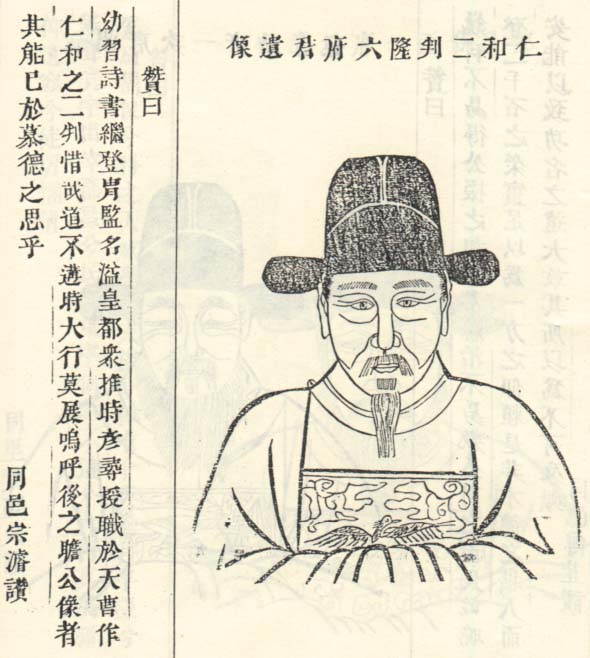 仁和二判隆六府君遺像
贊曰
幼習詩書繼登胄監名溢皇都衆推時彦尋授職於天曹作
仁和之二判惜哉道不遘時大行莫展嗚呼後之瞻公像者
其能已於慕德之思乎
同邑宗濬讚